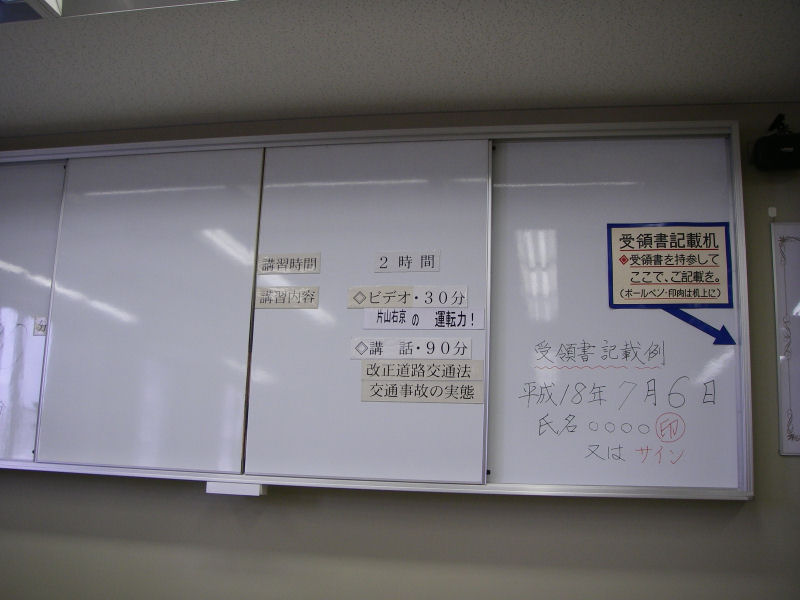 講習時間 2時間
講習内容 ◇ビデオ・30分
片山右京の 運転力!
◇講 話・90分
改正道路交通法
交通事故の実態
受領書記載机
◈受領書を持参して
ここで、ご記載を。
(ボールペン・印肉は机上に)
受領書記載例
平成18年7月6日
氏名○○○○㊞
又はサイン